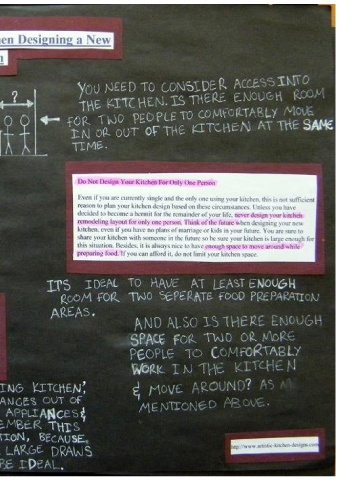 en Designing a New
n
?
YOU NEED TO CONSIDER ACCESS INTO
THE KITCHEN. IS THERE ENOUGH ROOM
FOR TWO PEOPLE TO COMFORTABLY MOVE
IN OR OUT OF THE KITCHEN AT THE SAME
TIME.
Do Not Design Your Kitchen For Only One Person
Even if you are currently single and the only one using your kitchen, this is not sufficient
reason to plan your kitchen design based on these circumstances. Unless you have
decided to become a hermit for the remainder of your life, never design your kitchen
remodeling layout for only one person. Think of the future when designing your new
kitchen, even if you have no plans of marriage or kids in your future. You are sure to
share your kitchen with someone in the future so be sure your kitchen is large enough for
this situation. Besides, it is always nice to have enough space to move around while
preparing food. If you can afford it, do not limit your kitchen space.
IT'S IDEAL TO HAVE AT LEAST ENOUGH
ROOM FOR TWO SEPERATE FOOD PREPARATION
AREAS.
AND ALSO IS THERE ENOUGH
SPACE FOR TWO OR MORE
PEOPLE TO COMFORTABLY
WORK IN THE KITCHEN
& MOVE AROUND? AS
MENTIONED ABOVE.
ING KITCHEN?
ANCES OUT OF
APPLIANCES &
EMBER THIS
TION, BECAUSE,
LARGE DRAWS
BE IDEAL.
http://www.artistic-kitchen-designs.com